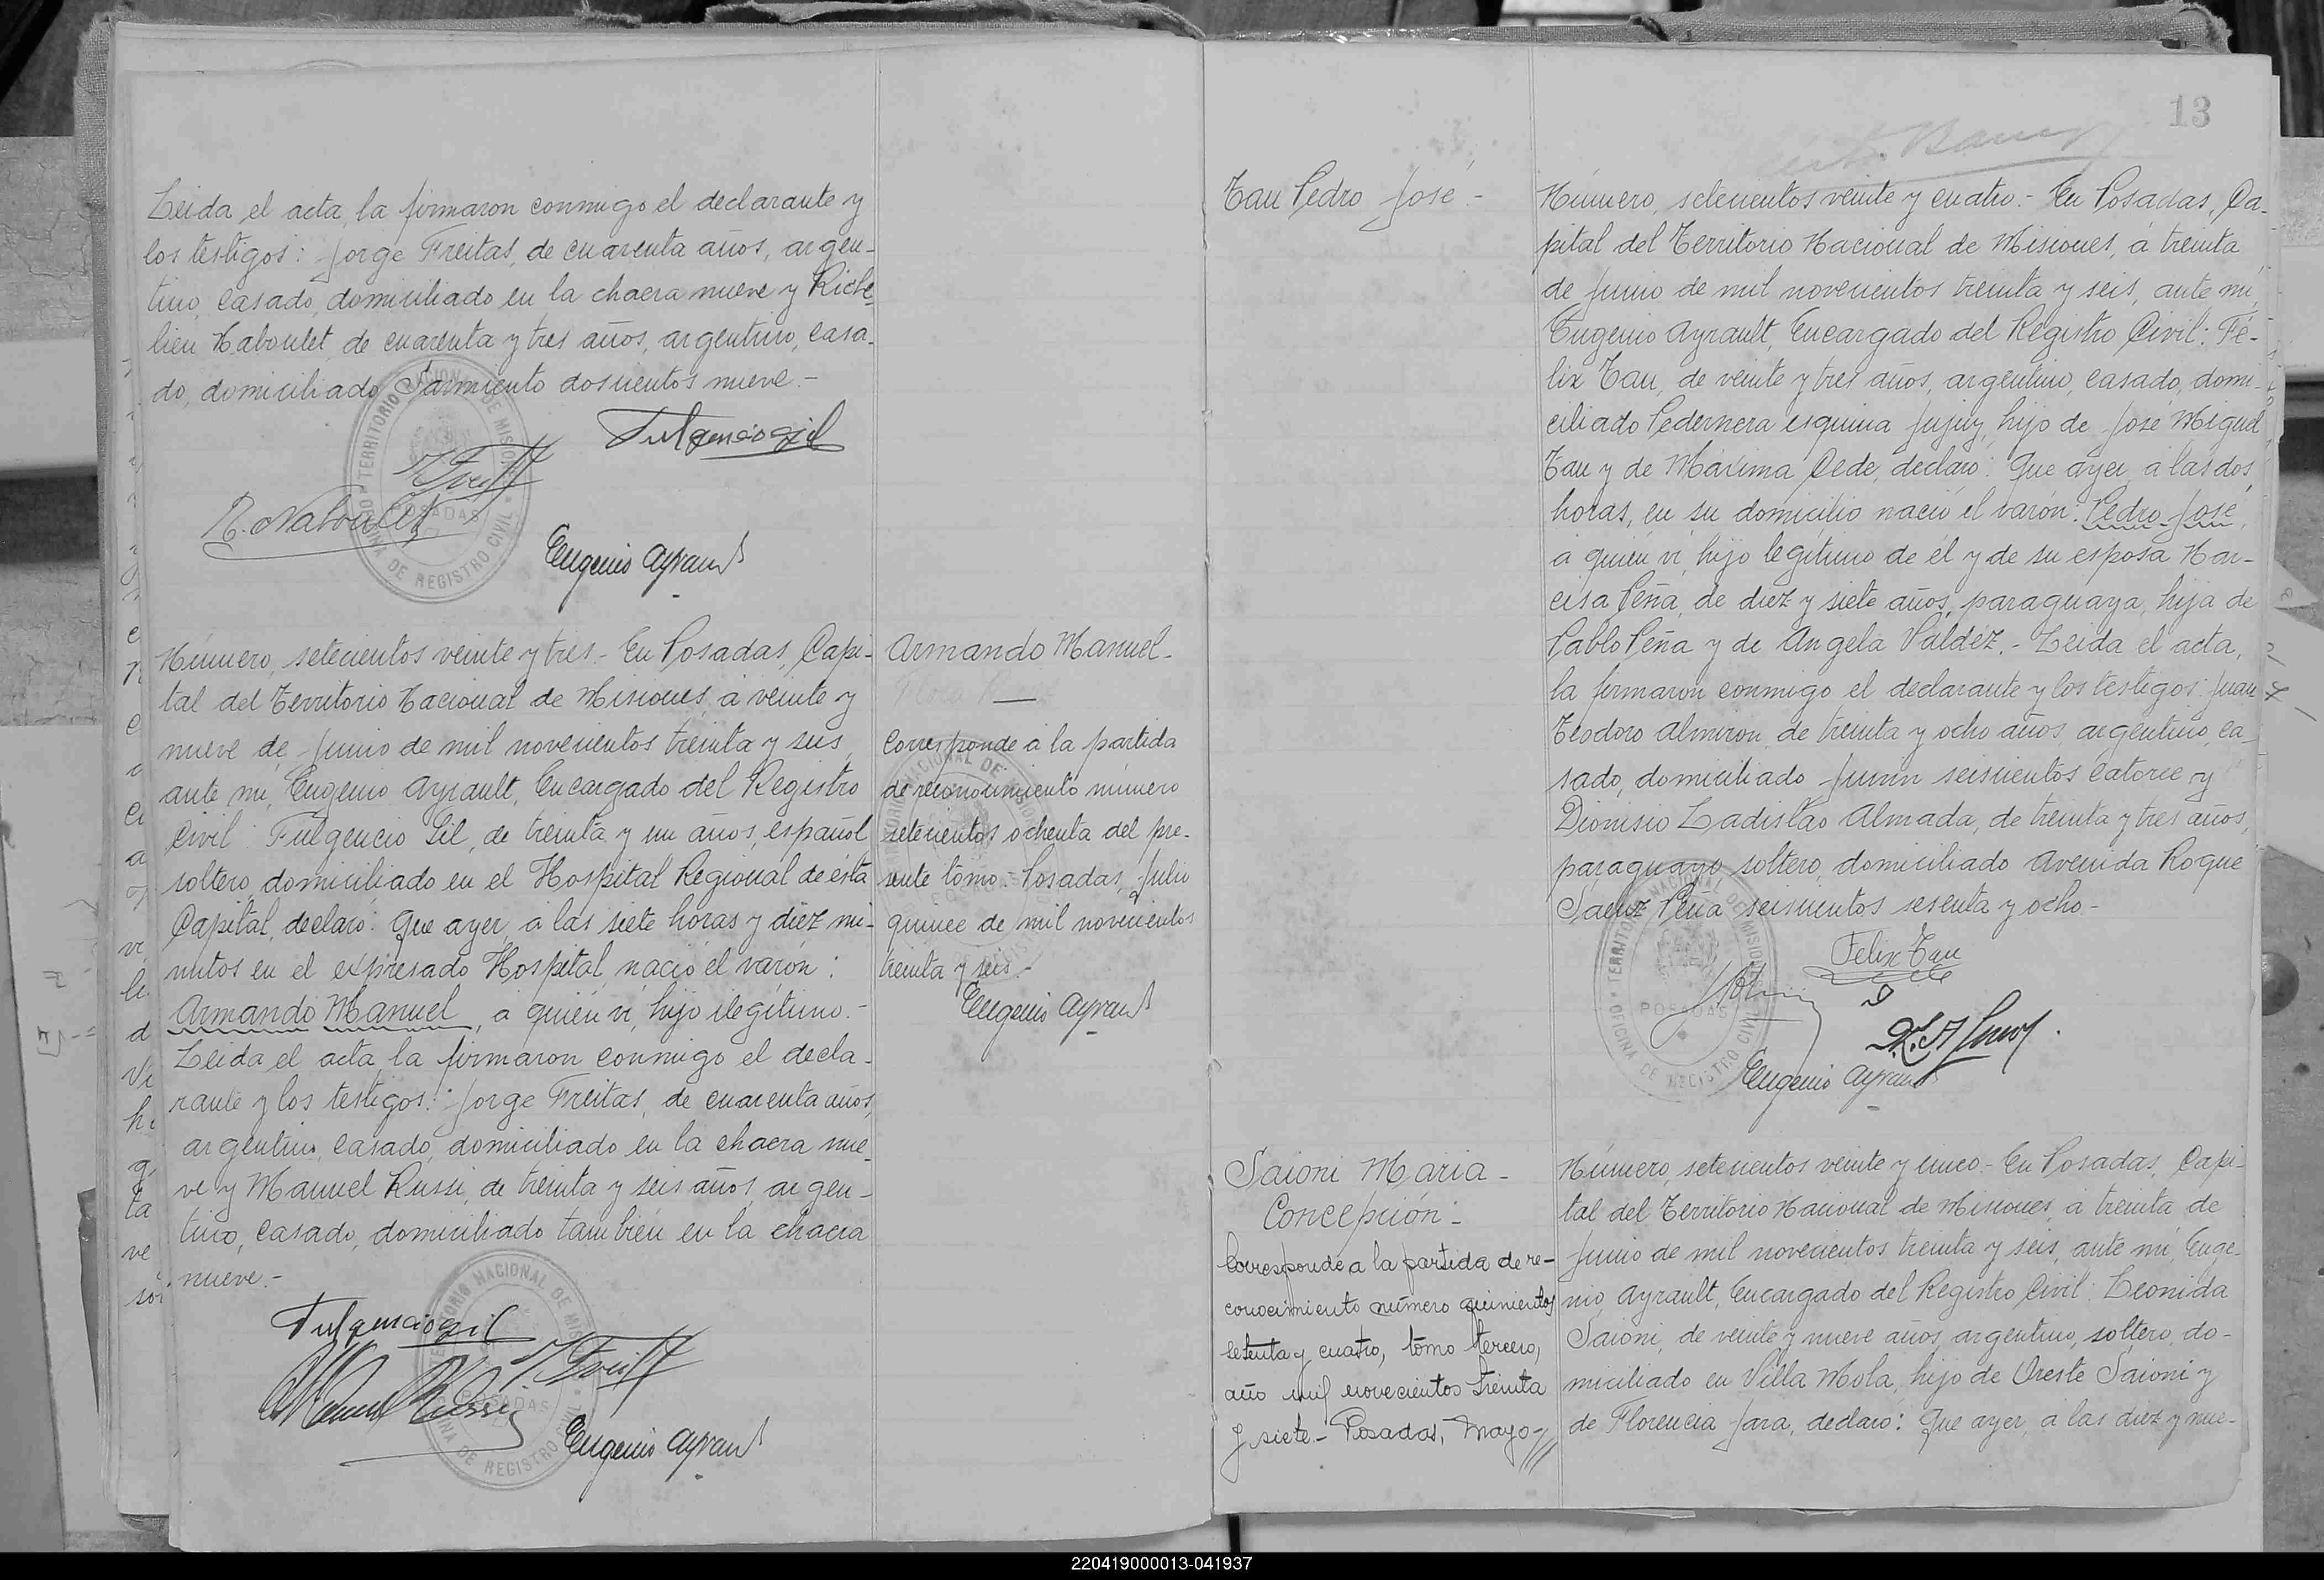 Leida el acta, la firmaron conmigo el declarante y
los testigos: Jorge Freitas, de cuarenta años, argen-
tino, casado, domiciliado en la chacra nueve y Riche-
lieu Naboulet, de cuarenta y tres años, argentino, casa-
do, domiciliado Sarmiento doscientos nueve.-
Fulgencio Gil
J. Freitas
R. Naboulet
Eugenio Ayrault
TERRITORIO NACIONAL DE MISIONES
POSADAS
OFICINA DE REGISTRO CIVIL
Número, setecientos veinte y tres.- En Posadas, Capi-
tal del Territorio Nacional de Misiones, á veinte y
nueve de Junio de mil novecientos treinta y seis,
ante mí, Eugenio Ayrault, Encargado del Registro
Civil: Fulgencio Gil, de treinta y un años, español
soltero, domiciliado en el Hospital Regional de ésta
Capital, declaró: Que ayer á las siete horas y diez mi-
nutos en el expresado Hospital, nació el varón:
Armando Manuel, á quién ví, hijo ilegítimo.-
Leida el acta, la firmaron conmigo el decla-
rante y los testigos: Jorge Freitas, de cuarenta años,
argentino, casado, domiciliado en la chacra nue-
ve y Manuel Russi, de treinta y seis años, argen-
tino, casado, domiciliado también en la chacra
nueve.-
Fulgencio Gil
J. Freitas
Manuel Russi
Eugenio Ayrault
TERRITORIO NACIONAL DE MISIONES
POSADAS
OFICINA DE REGISTRO CIVIL
Armando Manuel-
Corresponde á la partida
de reconocimiento número
setecientos ochenta del pre-
sente tomo.- Posadas, Julio
quince de mil novecientos
treinta y seis.-
Eugenio Ayrault
13
Tau Pedro José-
Número, setecientos veinte y cuatro.- En Posadas, Ca-
pital del Territorio Nacional de Misiones, á treinta
de Junio de mil novecientos treinta y seis, ante mí,
Eugenio Ayrault, Encargado del Registro Civil: Fé-
lix Tau, de veinte y tres años, argentino, casado, domi-
ciliado Pedernera esquina Jujuy, hijo de José Miguel
Tau y de Máxima Cede, declaró: Que ayer, á las dos
horas, en su domicilio nació el varón: Pedro José,
á quién ví, hijo legítimo de él y de su esposa Nar-
cisa Peña, de diez y siete años, paraguaya, hija de
Pablo Peña y de Angela Valdéz.- Leida el acta,
la firmaron conmigo el declarante y los testigos: Juan
Teodoro Almiron, de treinta y ocho años, argentino, ca-
sado, domiciliado Junín seiscientos catorce y
Dionisio Ladislao Almada, de treinta y tres años,
paraguayo, soltero, domiciliado Avenida Roque
Sáenz Peña seiscientos sesenta y ocho-
Felix Tau
Eugenio Ayrault
TERRITORIO NACIONAL DE MISIONES
POSADAS
OFICINA DE REGISTRO CIVIL
Saioni María-
Concepción-
Corresponde a la partida de re-
conocimiento número quinientos
setenta y cuatro, tomo tercero,
año mil novecientos treinta
y siete.- Posadas, Mayo-///
Número, setecientos veinte y cinco.- En Posadas, Capi-
tal del Territorio Nacional de Misiones, á treinta de
Junio de mil novecientos treinta y seis, ante mí, Euge-
nio Ayrault, Encargado del Registro Civil: Leonida
Saioni, de veinte y nueve años, argentino, soltero, do-
miciliado en Villa Mola, hijo de Oreste Saioni y
de Florencia Jara, declaró: Que ayer, á las diez y nue-
220419000013-041937